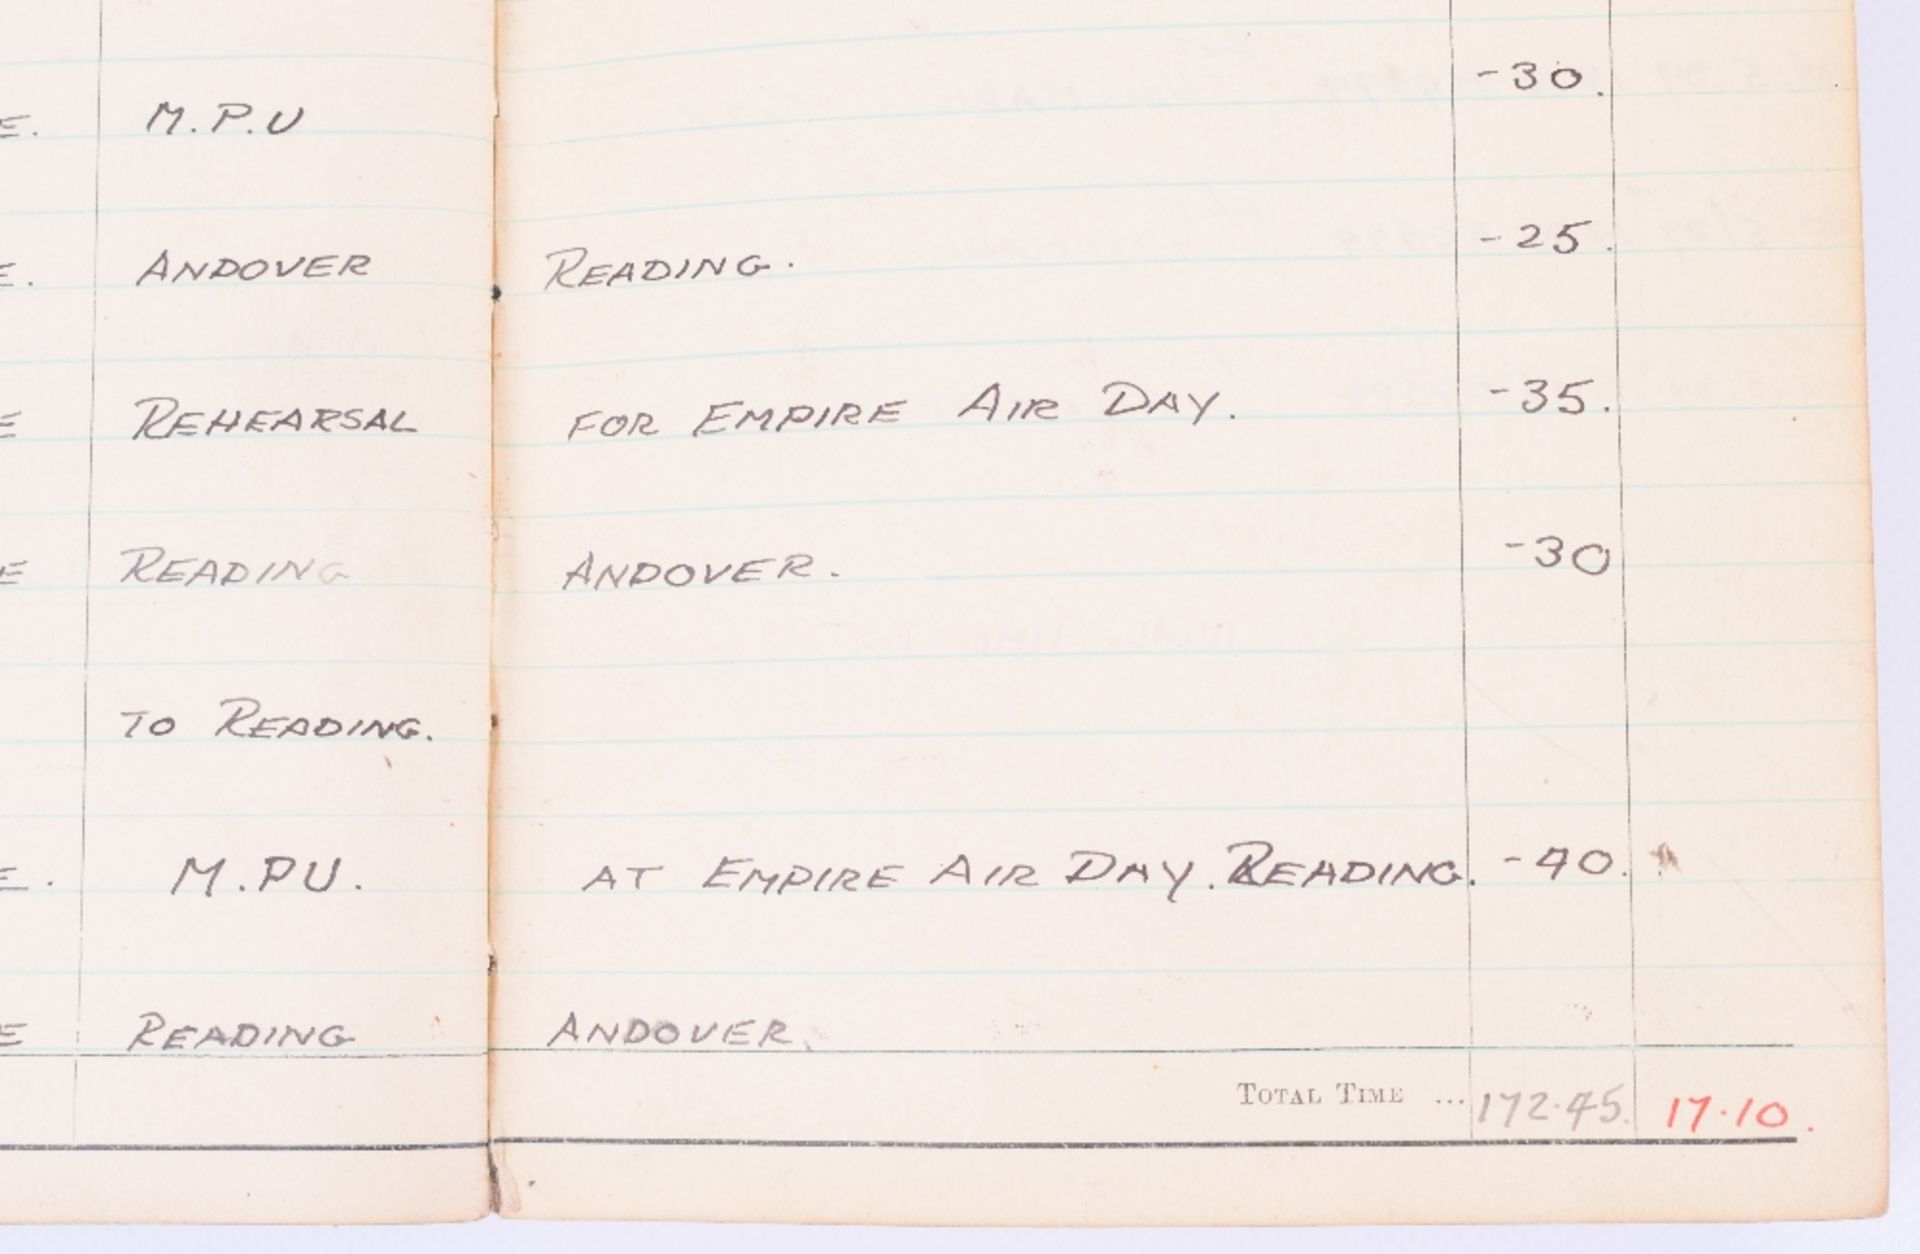 E. M.P.U -30.
E. ANDOVER READING. -25.
E REHEARSAL FOR EMPIRE AIR DAY. -35.
E READING ANDOVER. -30
TO READING.
E. M.P.U. AT EMPIRE AIR DAY. READING. -40.
E READING ANDOVER.
TOTAL TIME ... 172.45. 17.10.